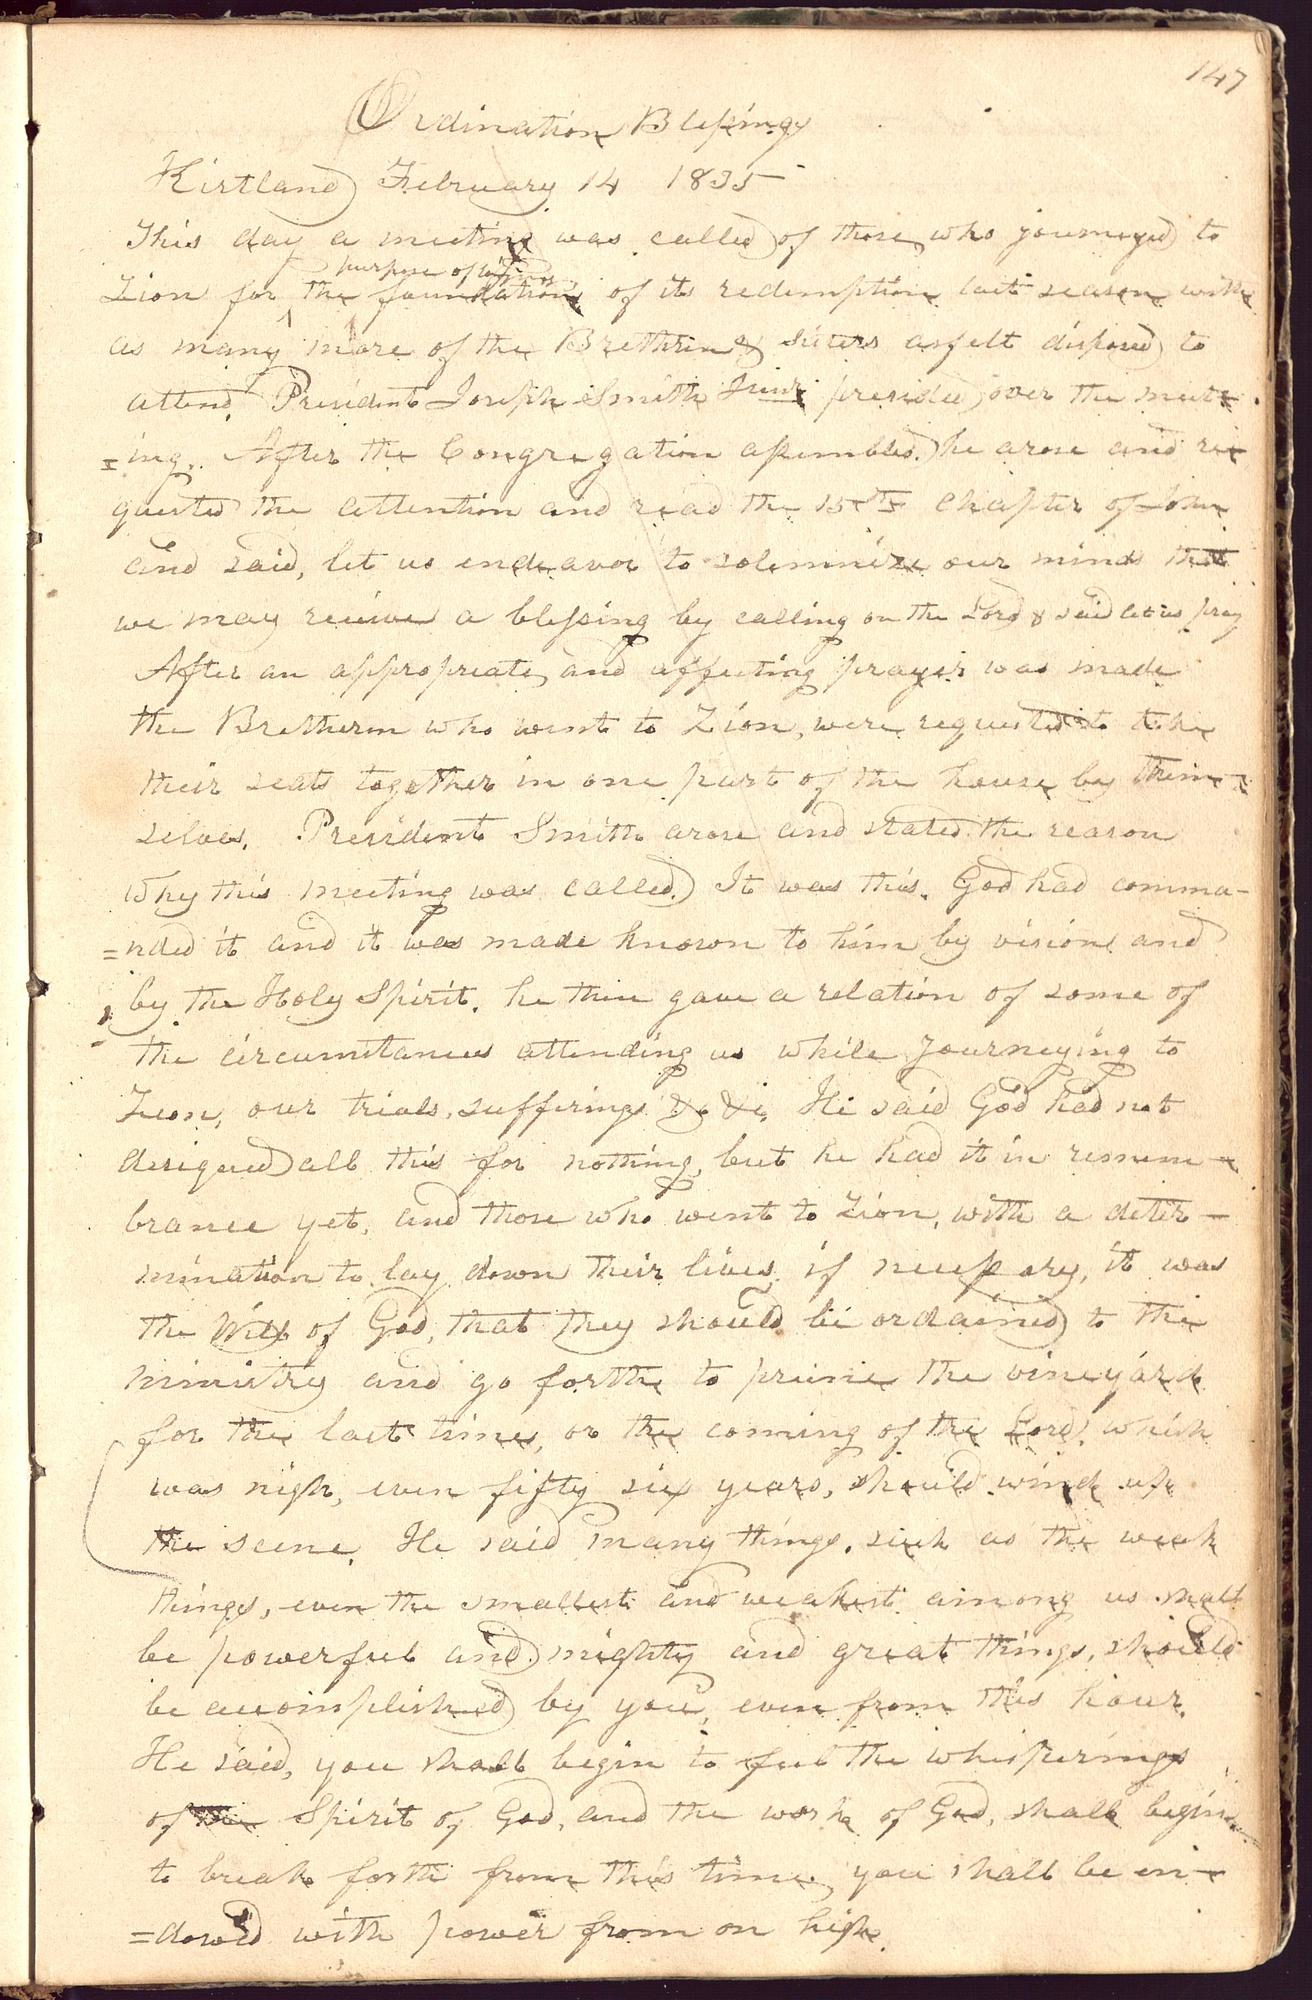 147
Ordination Blessings
Kirtland February 14 1835
This day a meeting was called of those who journeyed to
purpose of laying
Zion for the foundation of its redemption last season with
as many more of the Brethrin & Sisters as felt disposed to
attend. President Joseph Smith Junr presided over the meet-
=ing. After the Congregation assembled. he arose and re-
quested the attention and read the 15th Chapter of John
and said, let us endeavor to solemnize our minds that
we may recieve a blessing by calling on the Lord & said let us pray
After an appropreate and affecting prayer was made
the Bretheren who went to Zion, were requested to take
their seats together in one part of the house by them-
selves. President Smith arose and stated the reason
why this meeting was called. It was this. God had comma-
=nded it and it was made known to him by vision and
by the Holy Spirit. he then gave a relation of some of
the circumstances attending us while journeying to
Zion, our trials, sufferings &c &c, He said God had not
designed all this for nothing, but he had it in remem-
brance yet, and those who went to Zion, with a deter-
mination to lay down their lives, if necessary, it was
the Will of God, that they should be ordained to the
ministry and go forth to prune the vineyard
for the last time, or the coming of the Lord, which
was nigh, even fifty six years, should wind up
the scene. He said many things. such as the weak
things, even the smallest and weakest among us shall
be powerful and mighty and great things, should
be accomplished by you, even from this hour.
He said, you shall begin to feel the whisperings
of the Spirit of God, and the work of God, shall begin
to break forth from this time, you shall be en-
=dowed with power from on high.